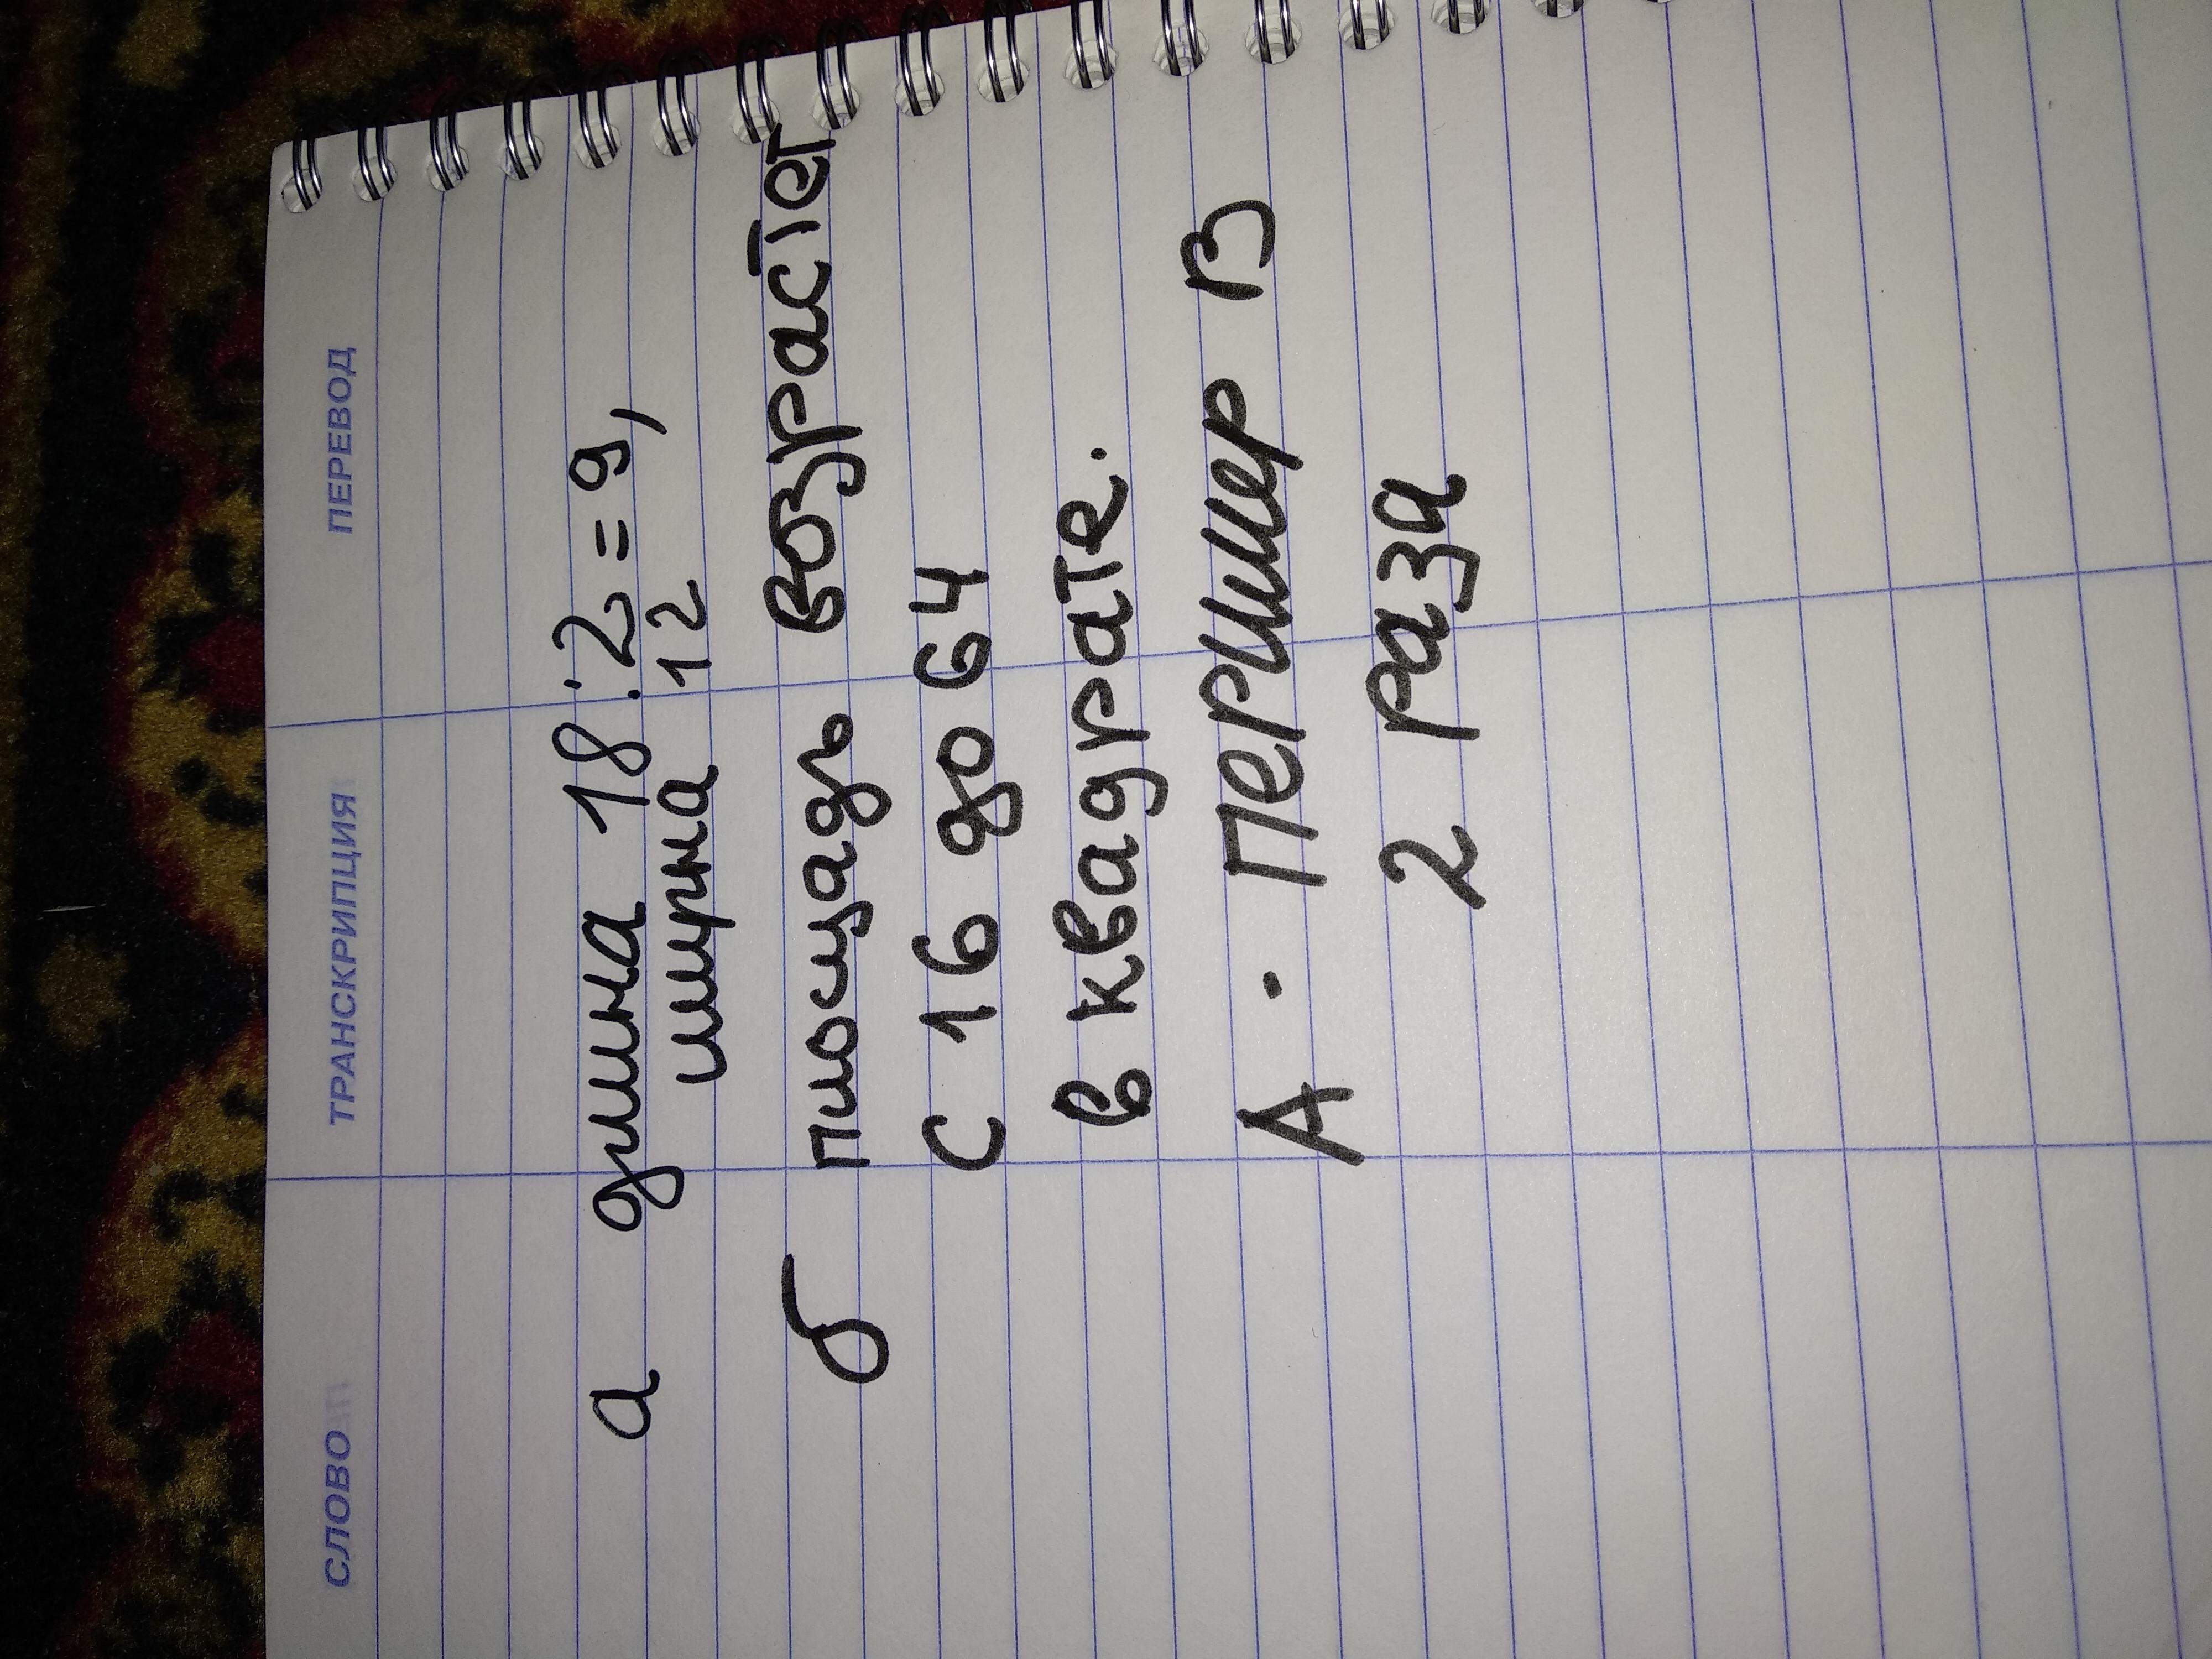 СЛОВО ТРАНСКРИПЦИЯ ПЕРЕВОД
а длина 18:2=9,
ширна 12
б плосщадь возрастет
С 16 до 64
в квадрате.
А. Периммер В
2 раза